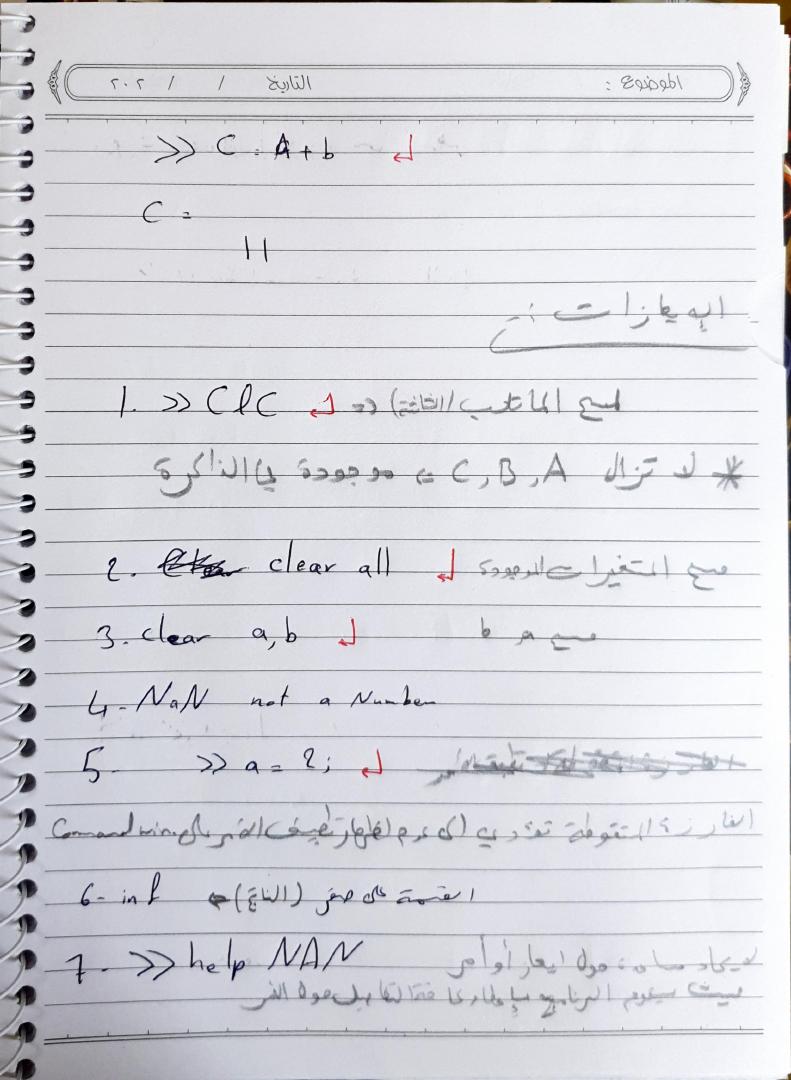 الموضوع : التاريخ / / ٢٠٢
>> C = A + b ↵
C =
11
الإيعازات :-
1. >> clc ↵ => لمسح الماتلاب (الشاشة)
* لا تزال C, B, A => موجودة في الذاكرة
2. clear all ↵ مسح المتغيرات الموجودة
3. clear a, b ↵ مسح a b
4 - NaN not a Number
5 - >> a = 2; ↵
الفارزة المنقوطة تؤدي الى عدم اظهار على Command win.
6 - inf (الناتج) القسمة على صفر
7 - >> help NAN حول ايعاز أو أمر
حيث سيقوم البرنامج بإعطاء كافة التفاصيل حول